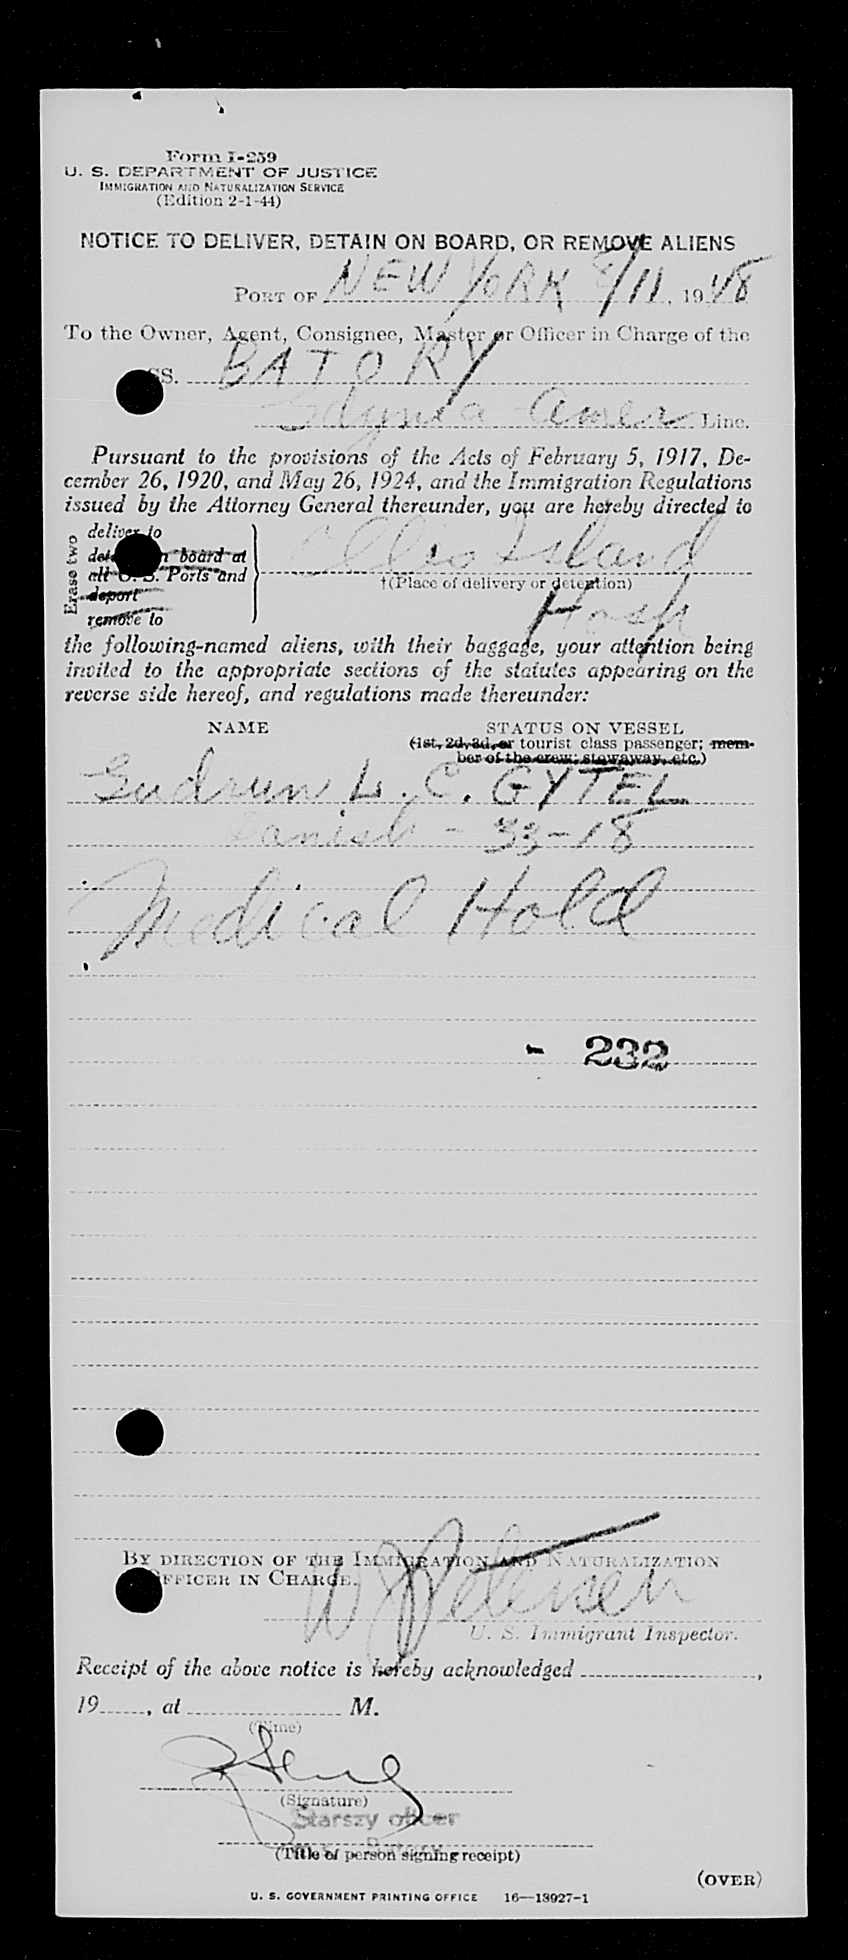 Form I-259
U. S. DEPARTMENT OF JUSTICE
IMMIGRATION AND NATURALIZATION SERVICE
(Edition 2-1-44)
NOTICE TO DELIVER, DETAIN ON BOARD, OR REMOVE ALIENS
PORT OF NEW YORK 8/11, 1948
To the Owner, Agent, Consignee, Master or Officer in Charge of the
SS. BATORY
Gdynia Amer Line.
Pursuant to the provisions of the Acts of February 5, 1917, De-
cember 26, 1920, and May 26, 1924, and the Immigration Regulations
issued by the Attorney General thereunder, you are hereby directed to
Erase two
deliver to
detain on board at
all U. S. Ports and
deport
remove to
Ellis Island
†(Place of delivery or detention)
Hosp
the following-named aliens, with their baggage, your attention being
invited to the appropriate sections of the statutes appearing on the
reverse side hereof, and regulations made thereunder:
NAME STATUS ON VESSEL
(1st, 2d, 3d, or tourist class passenger; mem-
ber of the crew; stowaway, etc.)
Gudrun L. C. GYTEL
Danish - 33-18
Medical Hold
- 232
BY DIRECTION OF THE IMMIGRATION AND NATURALIZATION
OFFICER IN CHARGE.
W Petersen
U. S. Immigrant Inspector.
Receipt of the above notice is hereby acknowledged ,
19 , at M.
(Time)
(Signature)
Starszy oficer
(Title of person signing receipt)
(OVER)
U. S. GOVERNMENT PRINTING OFFICE 16—18927-1